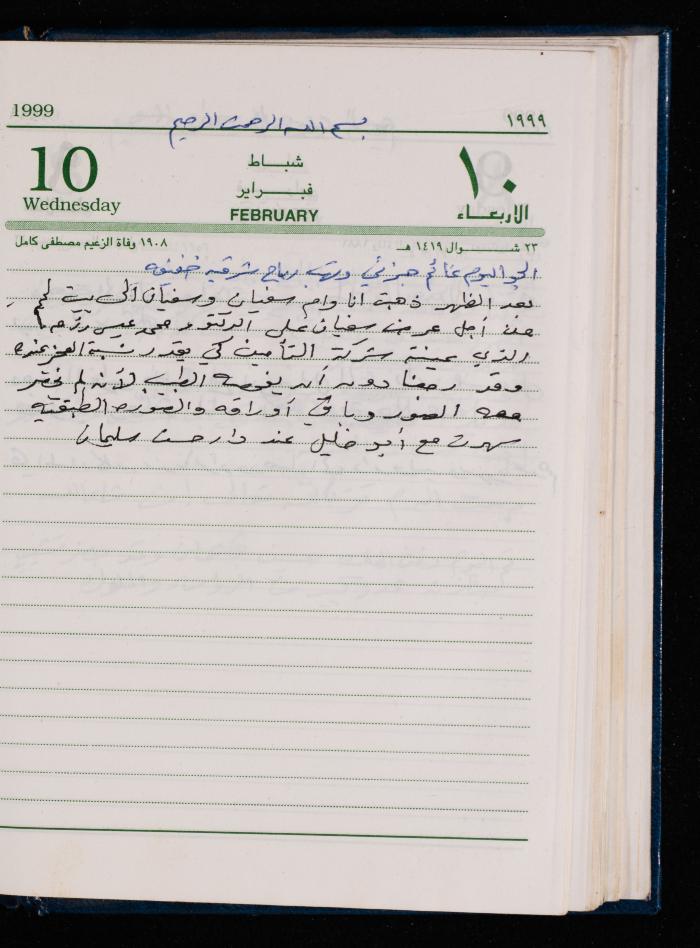 1999
١٩٩٩
بسم الله الرحمن الرحيم
10
Wednesday
شباط
فبراير
FEBRUARY
١٠
الاربعاء
٢٣ شوال ١٤١٩ هـ
١٩٠٨ وفاة الزعيم مصطفى كامل
الجو اليوم غائم جزئي وتهب رياح شرقيه خفيفه
بعد الظهر ذهبت انا وام سفيان وسفيان الى بيت لحم
من أجل عرض سفيان على الدكتور محمد عيسى
الذي عينته شركة التأمين كي يقدر نسبة العجز عنده
وقد رجعنا دون أن يفحصه الطبيب لأنه لم نحضر
معه الصور وباقي أوراقه والصوره الطبقيه
سهرت مع أبو خليل عند دار حسن سليمان